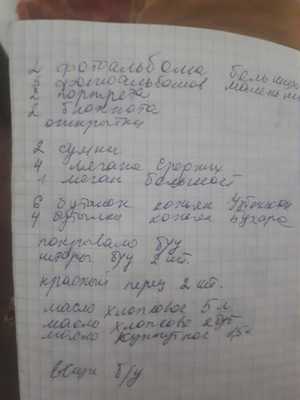 2 фотоальбома больших
3 фотоальбомов маленьких
2 портрета
2 блокнота
открытки
2 сумки
4 лягана средних
1 ляган большой
6 бутылок коньяк
4 бутылки коньяк Бухара
покрывало б/у
шторы б/у 2 шт.
красный перец 2 шт.
масло хлопковое 5 л
масло хлопковое
масло кунжутное 1,5 л
вещи б/у